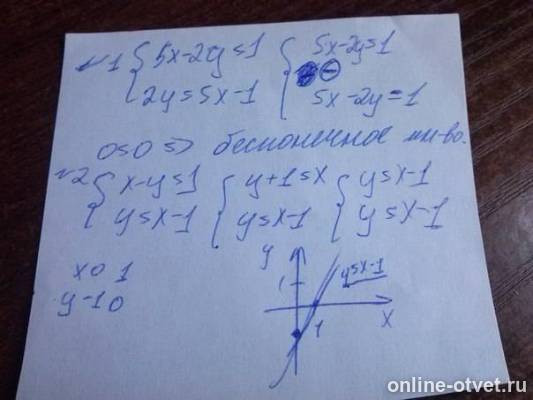 №1 { 5x-2y=1 { 5x-2y=1
2y=5x-1 5x-2y=1
0=0 => бесконечное мн-во.
№2 { x-y=1 { y+1=x { y=x-1
y=x-1 y=x-1 y=x-1
x 0 1
y -1 0
y
1
y=x-1
1
x
online-otvet.ru